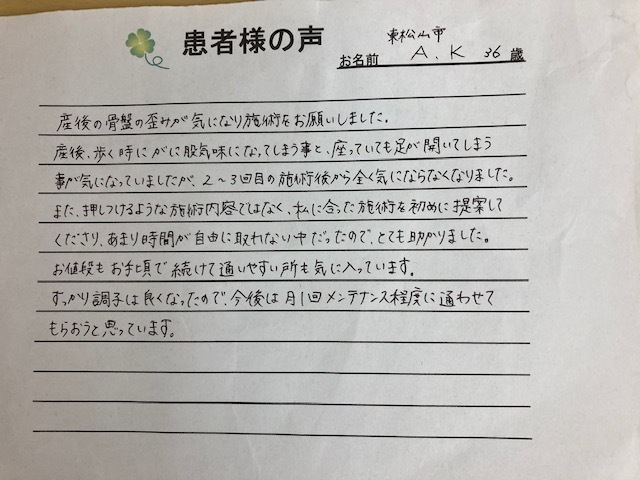 患者様の声
東松山市
お名前 A.K 36歳
産後の骨盤の歪みが気になり施術をお願いしました。
産後、歩く時にがに股気味になってしまう事と、座っていても足が開いてしまう
事が気になっていましたが、2〜3回目の施術後から全く気にならなくなりました。
また、押しつけるような施術内容ではなく、私に合った施術を初めに提案して
くださり、あまり時間が自由に取れない中だったので、とても助かりました。
お値段もお手頃で続けて通いやすい所も気に入っています。
すっかり調子は良くなったので、今後は月1回メンテナンス程度に通わせて
もらおうと思っています。